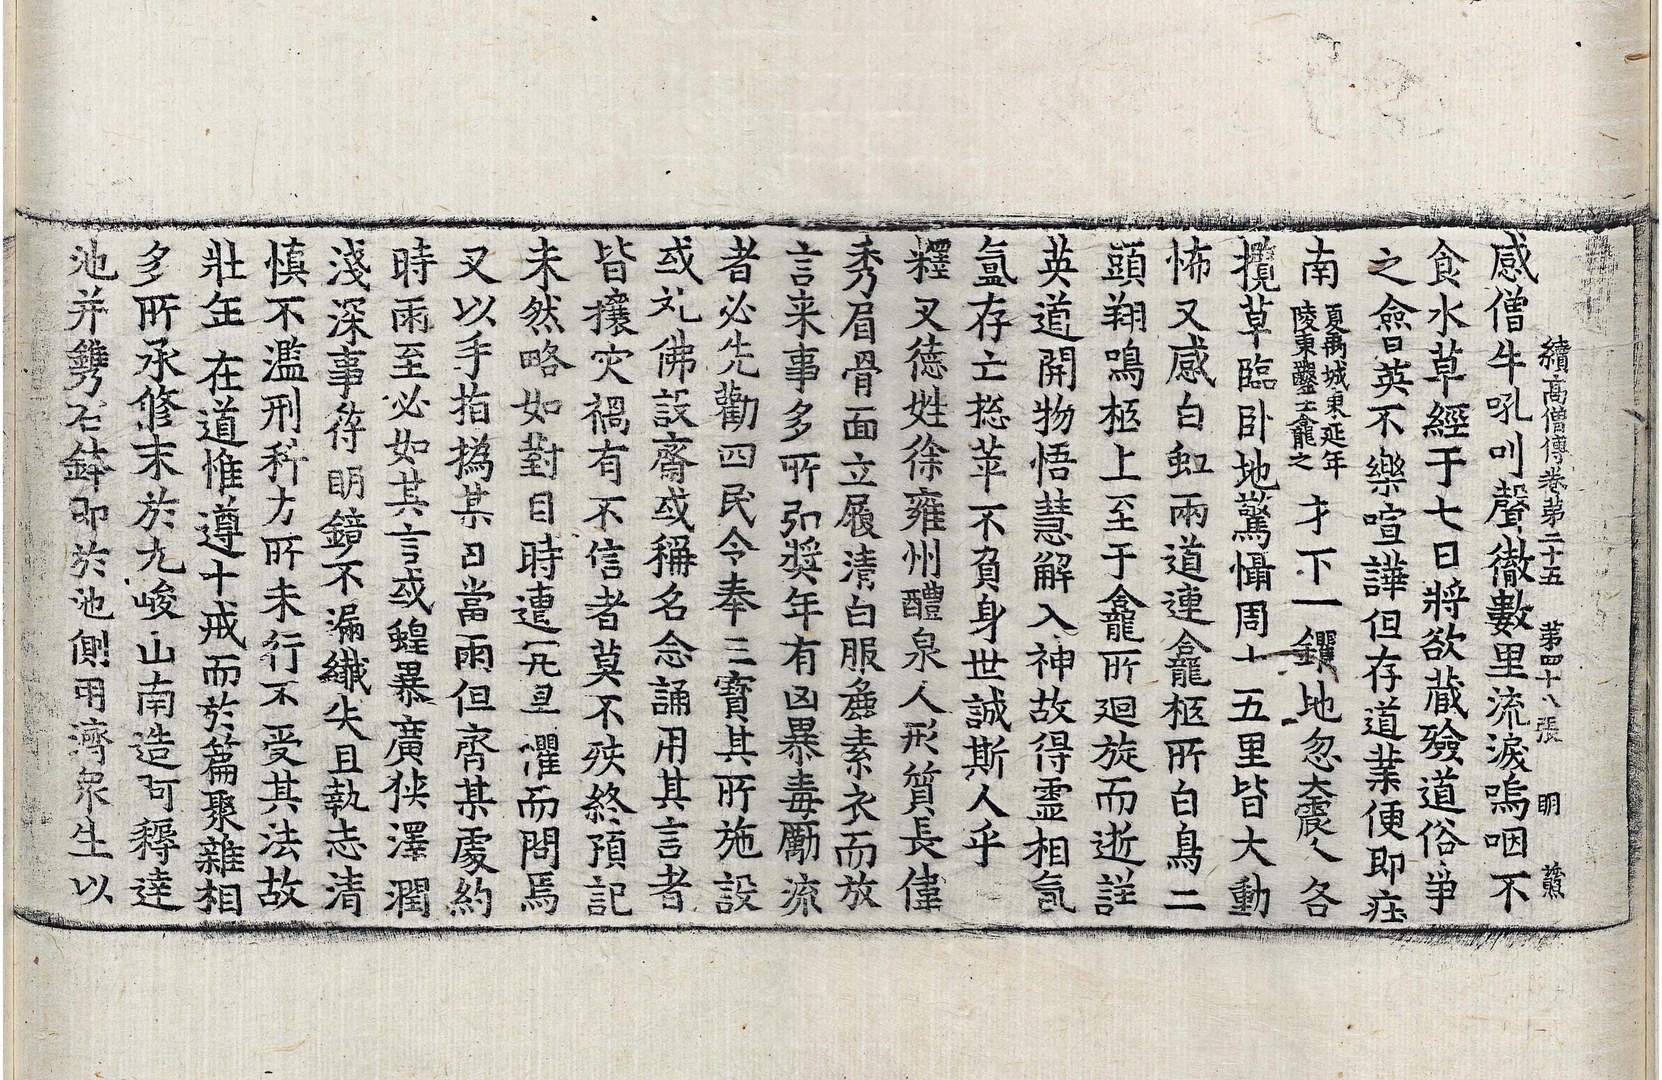 續高僧傳卷第二十五　第四十八張　明
感僧牛吼叫聲徹數里流淚嗚咽不
食水草經于七日將欲藏殮道俗爭
之僉曰英不樂喧譁但存道業便即在
南夏禹城東延年陵東鑿土龕之才下一钁地忽大震人各
攬草臨卧地驚懾周十五里皆大動
怖又感白虹兩道連龕柩所白鳥二
頭翔鳴柩上至于龕所迴旋而逝詳
英道開物悟慧解入神故得靈相氛
氳存亡捴萃不負身世誠斯人乎
釋叉德姓徐雍州醴泉人形質長偉
秀眉骨面立履清白服麁素衣而放
言来事多所弘奬年有凶暴毒勵流
者必先勸四民令奉三寶其所施設
或礼佛設齋或稱名念誦用其言者
皆攘灾禍有不信者莫不殃終預記
未然略如對目時遭亢旱懼而問焉
又以手指撝某日當雨但齊某處約
時雨至必如其言或蝗暴廣狹澤潤
淺深事符明鏡不漏纖失且執志清
慎不濫刑科方所未行不受其法故
壯年在道惟遵十戒而於篇聚雜相
多所承修末於九峻山南造阿耨達
池并鐫石鉢即於池側用濟衆生以